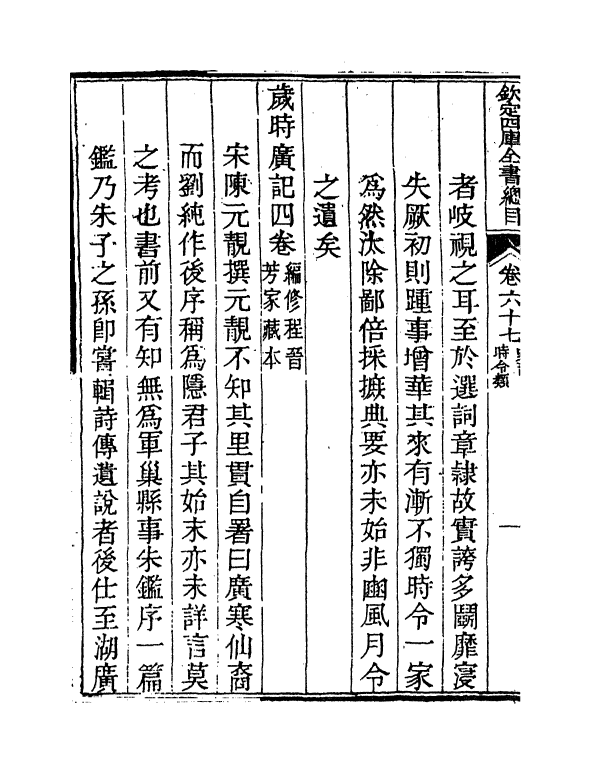 欽定四庫全書總目
卷六十七
時令類
一
者岐視之耳至於選詞章隷故實誇多鬭靡寖
失厥初則踵事增華其來有漸不獨時令一家
爲然汰除鄙倍採摭典要亦未始非豳風月令
之遺矣
歲時廣記四卷
編修程晉
芳家藏本
宋陳元靚撰元靚不知其里貫自署曰廣寒仙裔
而劉純作後序稱爲隱君子其始末亦未詳言莫
之考也書前又有知無爲軍巢縣事朱鑑序一篇
鑑乃朱子之孫卽嘗輯詩傳遺說者後仕至湖廣